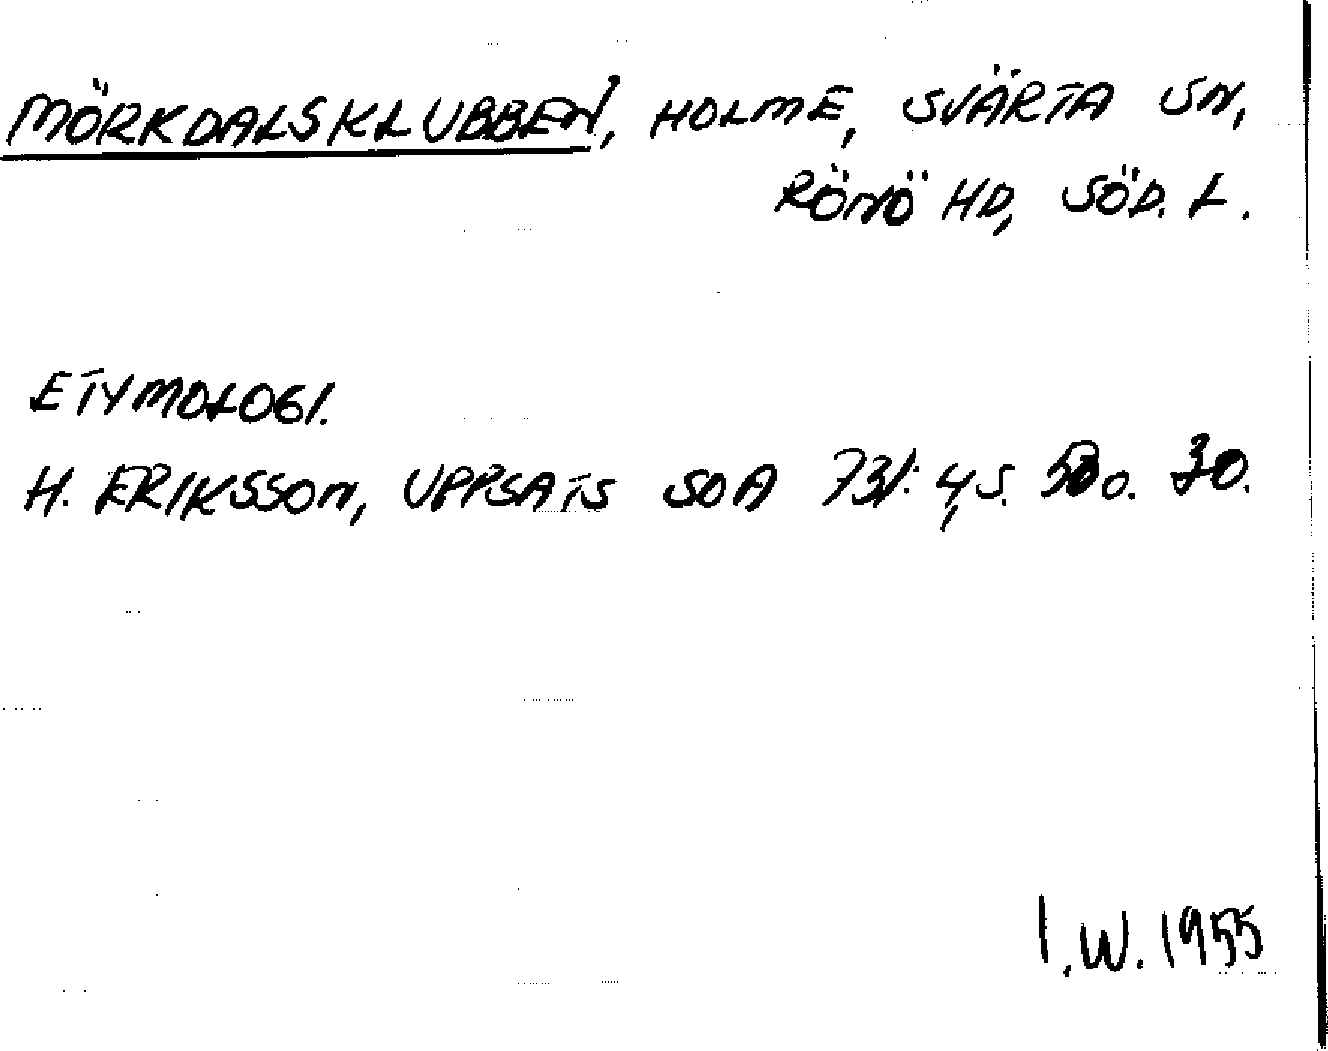 MÖRKDALSKLUBBEN, HOLME, SVÄRTA SN,
RÖNÖ HD, SÖD. L.
ETYMOLOGI.
H. ERIKSSON, UPPSATS SOA 731:4, S. o. 30.
I.W. 1955